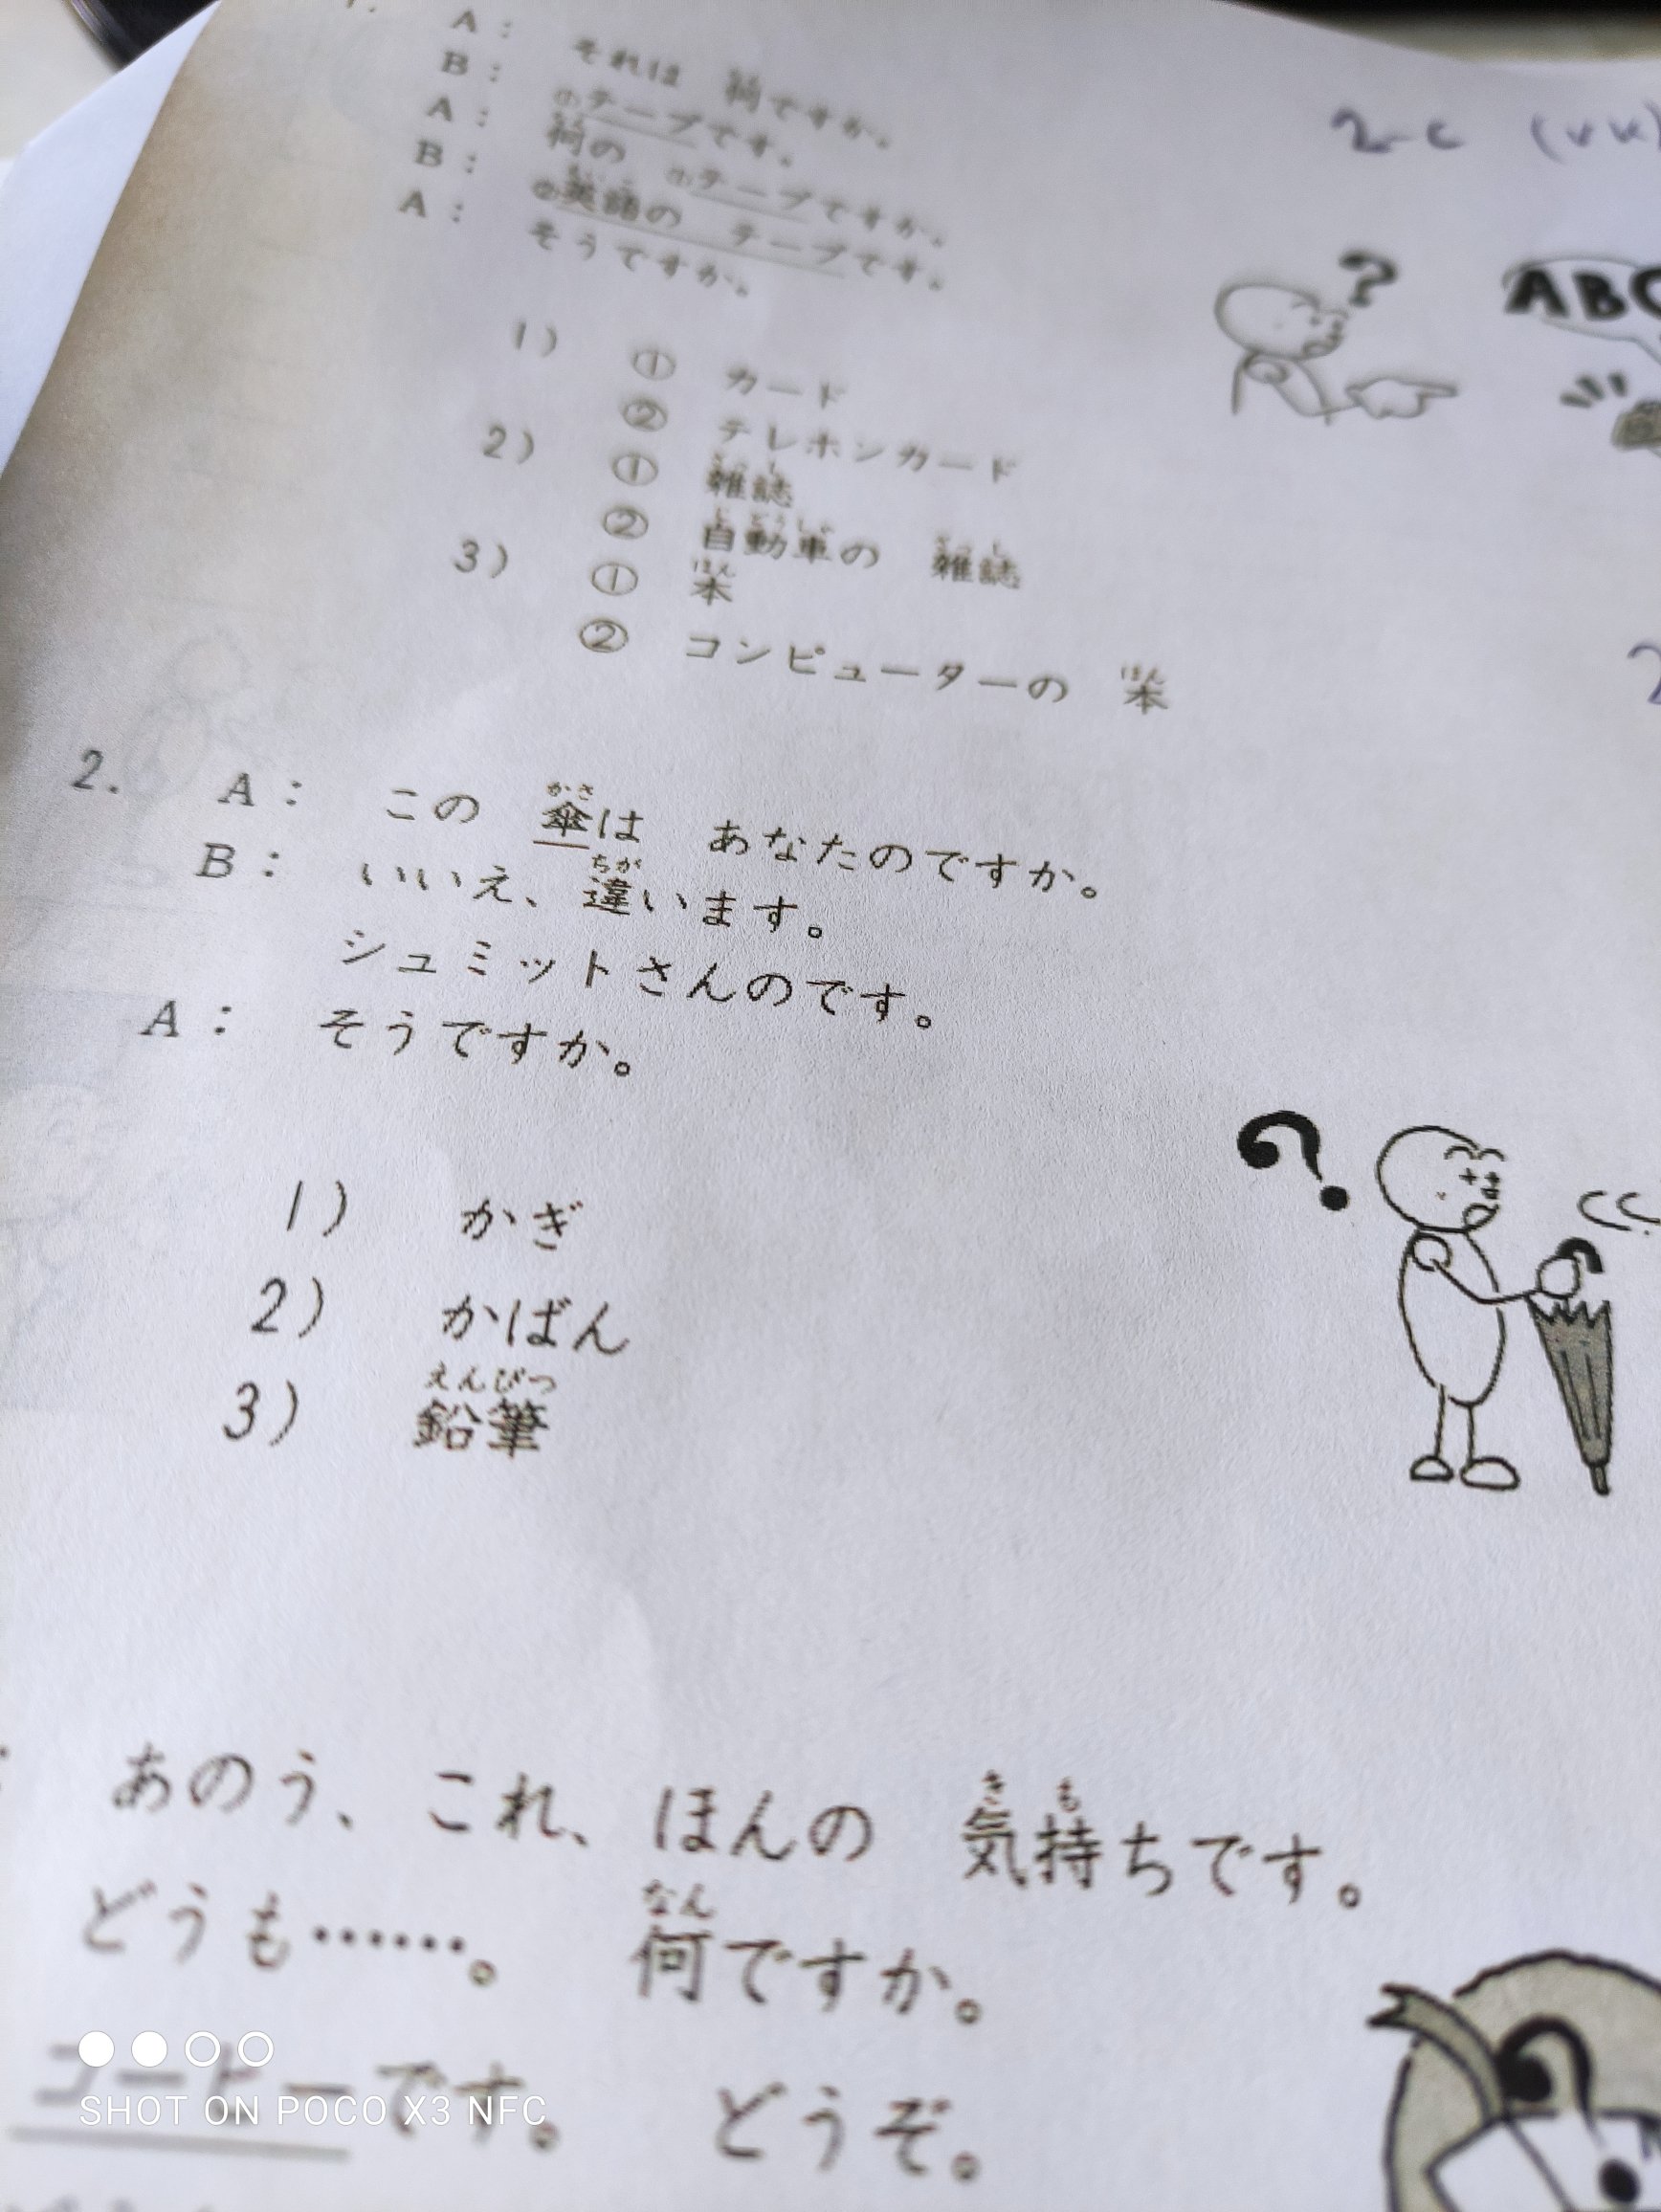 A： それは 何ですか。
B： ①テープです。
A： 何の ①テープですか。
B： ②英語の テープです。
A： そうですか。
1） ① カード
② テレホンカード
2） ① 雑誌
② 自動車の 雑誌
3） ① 本
② コンピューターの 本
2-C
ABC
2. A： この 傘は あなたのですか。
B： いいえ、違います。
シュミットさんのです。
A： そうですか。
1） かぎ
2） かばん
3） 鉛筆
あのう、これ、ほんの 気持ちです。
どうも……。 何ですか。
コーヒーです。 どうぞ。
SHOT ON POCO X3 NFC